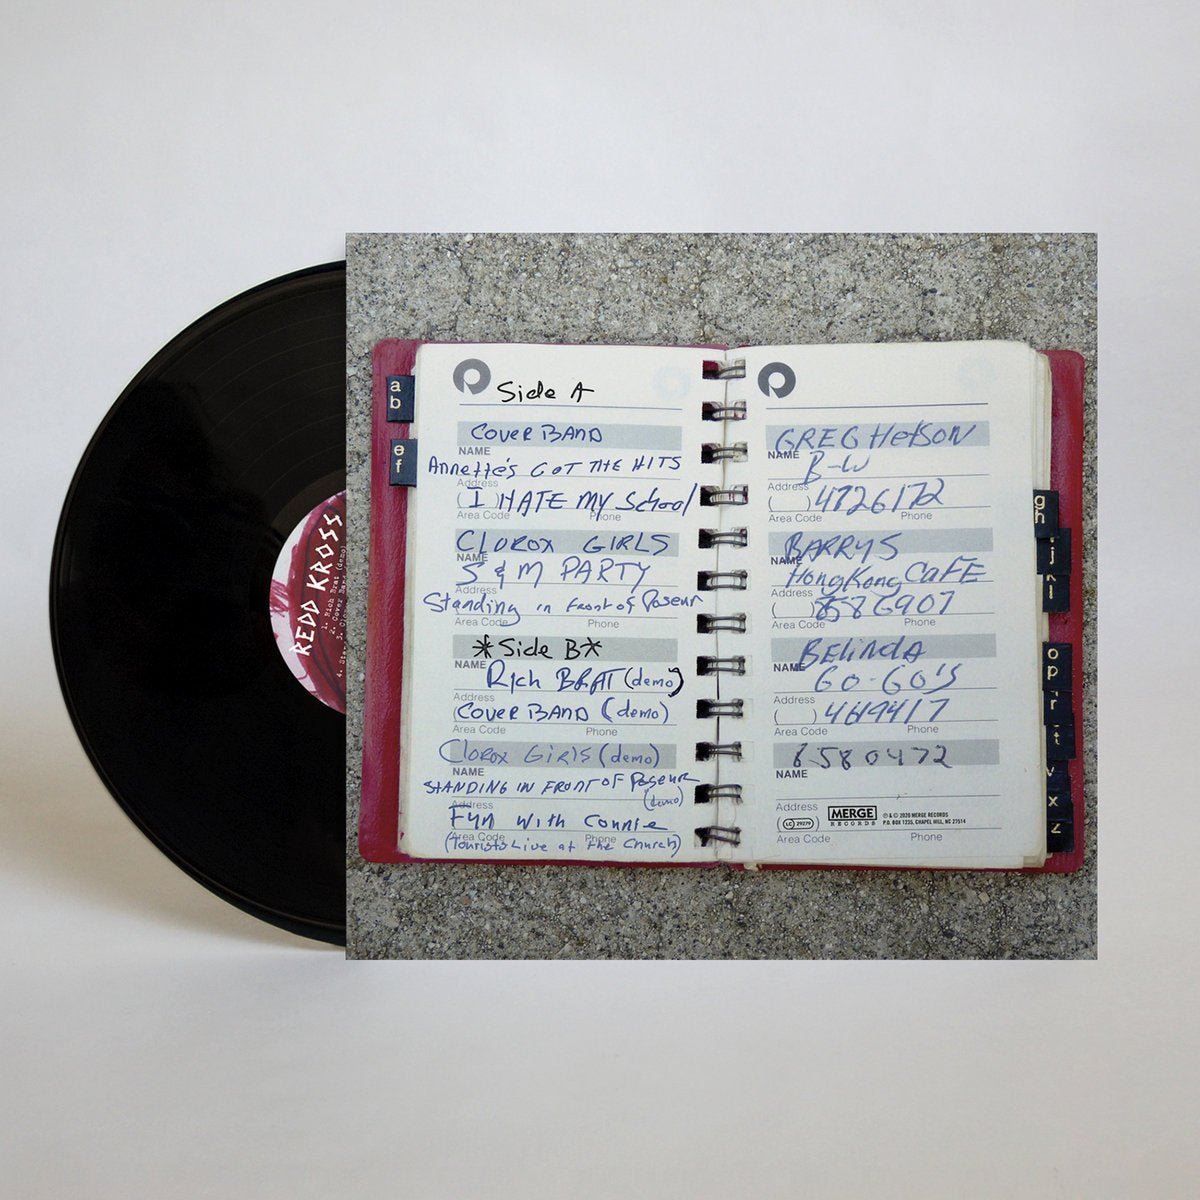 REDD KROSS
1. Rich Brat (demo)
a
b
e
f
Side A
COVER BAND
NAME
Annette's GOT THE HITS
Address
( ) I HATE MY School
Area Code Phone
CLOROX GIRLS
NAME
S & M PARTY
Address
Standing in Front of Poseur
Area Code Phone
*Side B*
NAME
Rich BRAT (demo)
Address
COVER BAND (demo)
Area Code Phone
Clorox Girls (demo)
NAME
STANDING IN FRONT OF Poseur
(demo)
Address
Fun with Connie
Area Code Phone
(Tourists Live at the Church)
GREG HetSON
NAME
B-W
Address
( ) 4726172
Area Code Phone
BARRYS
NAME
HongKong CaFE
Address
( ) 8586907
Area Code Phone
BElindA
NAME
GO-GO'S
Address
( ) 4619417
Area Code Phone
6580472
NAME
Address
LC 29279
MERGE
RECORDS
℗ & © 2020 MERGE RECORDS
P.O. BOX 1235, CHAPEL HILL, NC 27514
Area Code Phone
g
h
j
l
o
p
r
t
v
x
z